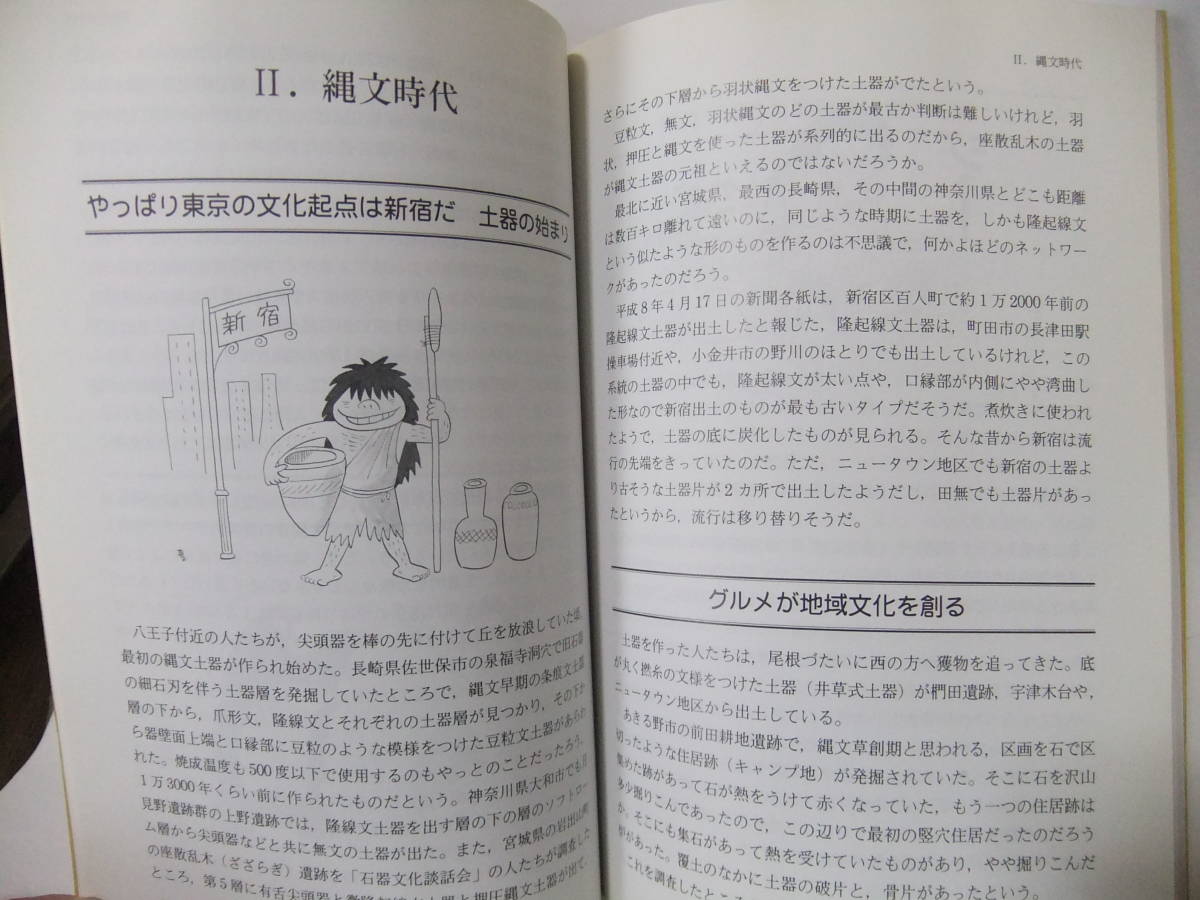 II．縄文時代
やっぱり東京の文化起点は新宿だ　土器の始まり
新宿
八王子付近の人たちが，尖頭器を棒の先に付けて丘を放浪していた頃，
最初の縄文土器が作られ始めた。長崎県佐世保市の泉福寺洞穴で旧石器
の細石刃を伴う土器層を発掘していたところで，縄文早期の条痕文土器
層の下から，爪形文，隆線文とそれぞれの土器層が見つかり，その下か
ら器壁面上端と口縁部に豆粒のような模様をつけた豆粒文土器があらわ
れた。焼成温度も500度以下で使用するのもやっとのことだったろう。
1万3000年くらい前に作られたものだという。神奈川県大和市でも月
見野遺跡群の上野遺跡では，隆線文土器を出す層の下の層のソフトロー
ム層から尖頭器などと共に無文の土器が出た。また，宮城県の岩出山町
の座散乱木（ざざらぎ）遺跡を「石器文化談話会」の人たちが調査した
ところ，第5層に有舌尖頭器と微隆起線文土器と押圧縄文土器が出て，
II．縄文時代
さらにその下層から羽状縄文をつけた土器がでたという。
豆粒文，無文，羽状縄文のどの土器が最古か判断は難しいけれど，羽
状，押圧と縄文を使った土器が系列的に出るのだから，座散乱木の土器
が縄文土器の元祖といえるのではないだろうか。
最北に近い宮城県，最西の長崎県，その中間の神奈川県とどこも距離
は数百キロ離れて遠いのに，同じような時期に土器を，しかも隆起線文
という似たような形のものを作るのは不思議で，何かよほどのネットワー
クがあったのだろう。
平成8年4月17日の新聞各紙は，新宿区百人町で約1万2000年前の
隆起線文土器が出土したと報じた，隆起線文土器は，町田市の長津田駅
操車場付近や，小金井市の野川のほとりでも出土しているけれど，この
系統の土器の中でも，隆起線文が太い点や，口縁部が内側にやや湾曲し
た形なので新宿出土のものが最も古いタイプだそうだ。煮炊きに使われ
たようで，土器の底に炭化したものが見られる。そんな昔から新宿は流
行の先端をきっていたのだ。ただ，ニュータウン地区でも新宿の土器よ
り古そうな土器片が2カ所で出土したようだし，田無でも土器片があっ
たというから，流行は移り替りそうだ。
グルメが地域文化を創る
土器を作った人たちは，尾根づたいに西の方へ獲物を追ってきた。底
が丸く撚糸の文様をつけた土器（井草式土器）が椚田遺跡，宇津木台や，
ニュータウン地区から出土している。
あきる野市の前田耕地遺跡で，縄文草創期と思われる，区画を石で区
切ったような住居跡（キャンプ地）が発掘されていた。そこに石を沢山
集めた跡があって石が熱をうけて赤くなっていた，もう一つの住居跡は
多少掘りこんであったので，この辺りで最初の竪穴住居だったのだろう
か。そこにも集石があって熱を受けていたものがあり，やや掘りこんだ
炉があった。覆土のなかに土器の破片と，骨片があったという。
これを調査したところ